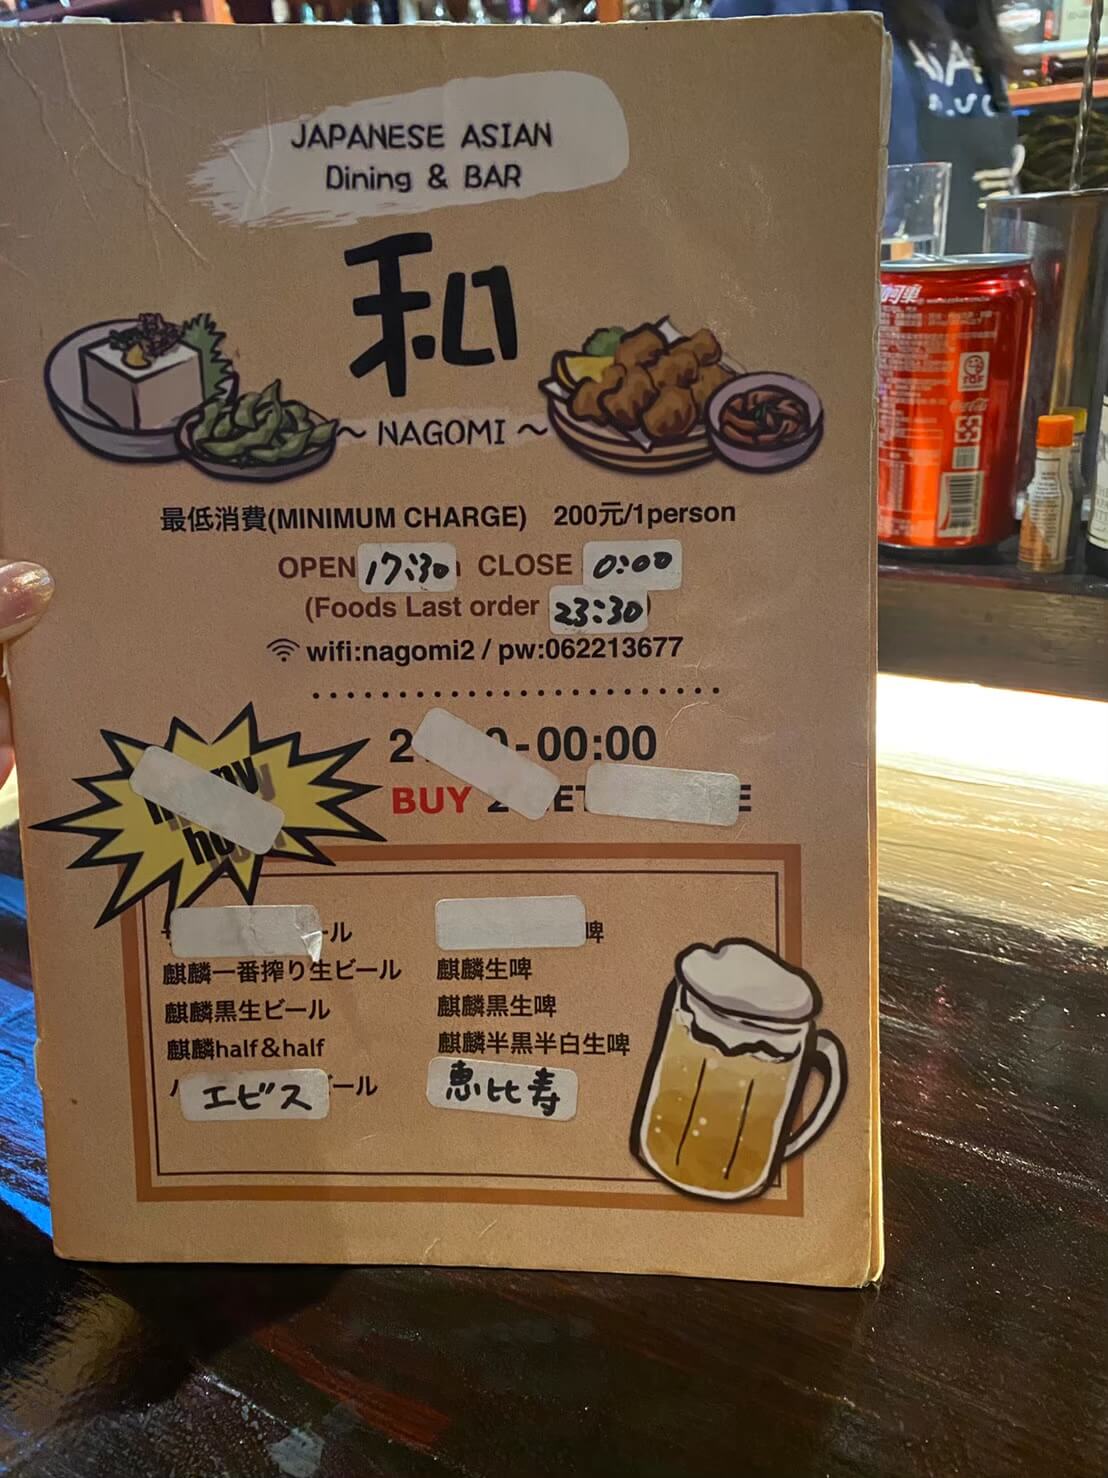 JAPANESE ASIAN
Dining & BAR
和
～ NAGOMI ～
最低消費(MINIMUM CHARGE) 200元/1person
OPEN 17:30 CLOSE 0:00
(Foods Last order 23:30)
wifi:nagomi2 / pw:062213677
-00:00
BUY 2
ール 啤
麒麟一番搾り生ビール 麒麟生啤
麒麟黒生ビール 麒麟黒生啤
麒麟half＆half 麒麟半黒半白生啤
エビス ビール 恵比寿